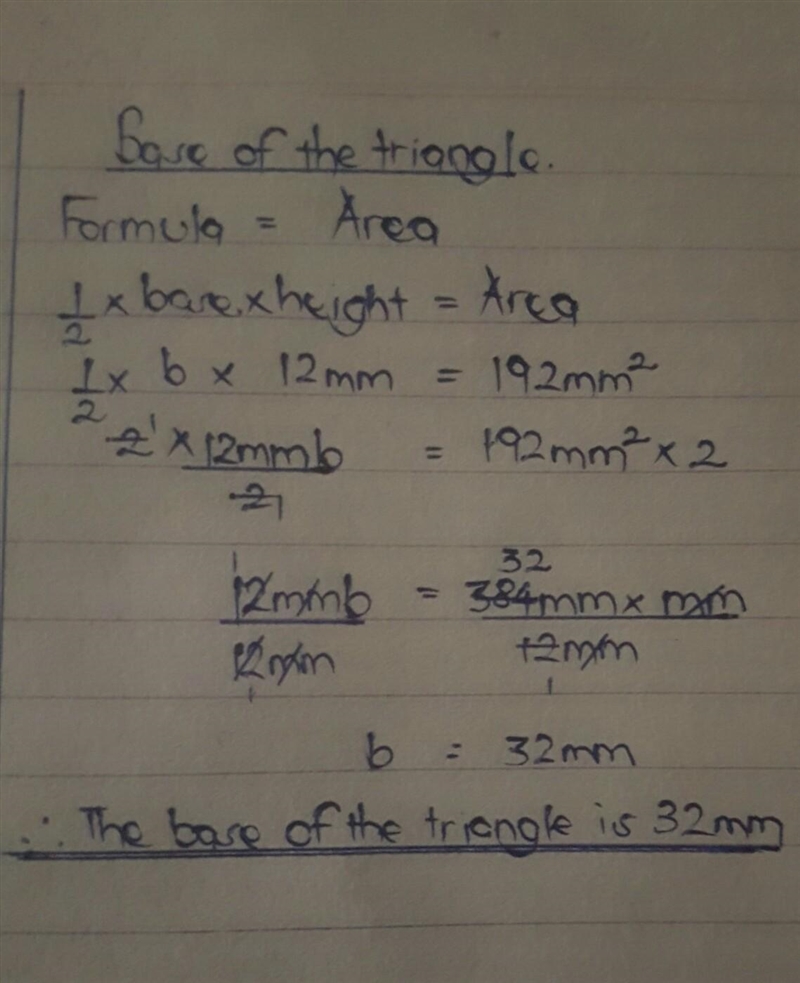 Base of the triangle.
Formula = Area
1/2 × base × height = Area
1/2 × b × 12mm = 192mm²
2 1 × 12mmb / 2 1 = 192mm² × 2
1 32
12mmb / 12mm = 384mm × mm / 12mm
1 1
b = 32mm
∴ The base of the triangle is 32mm